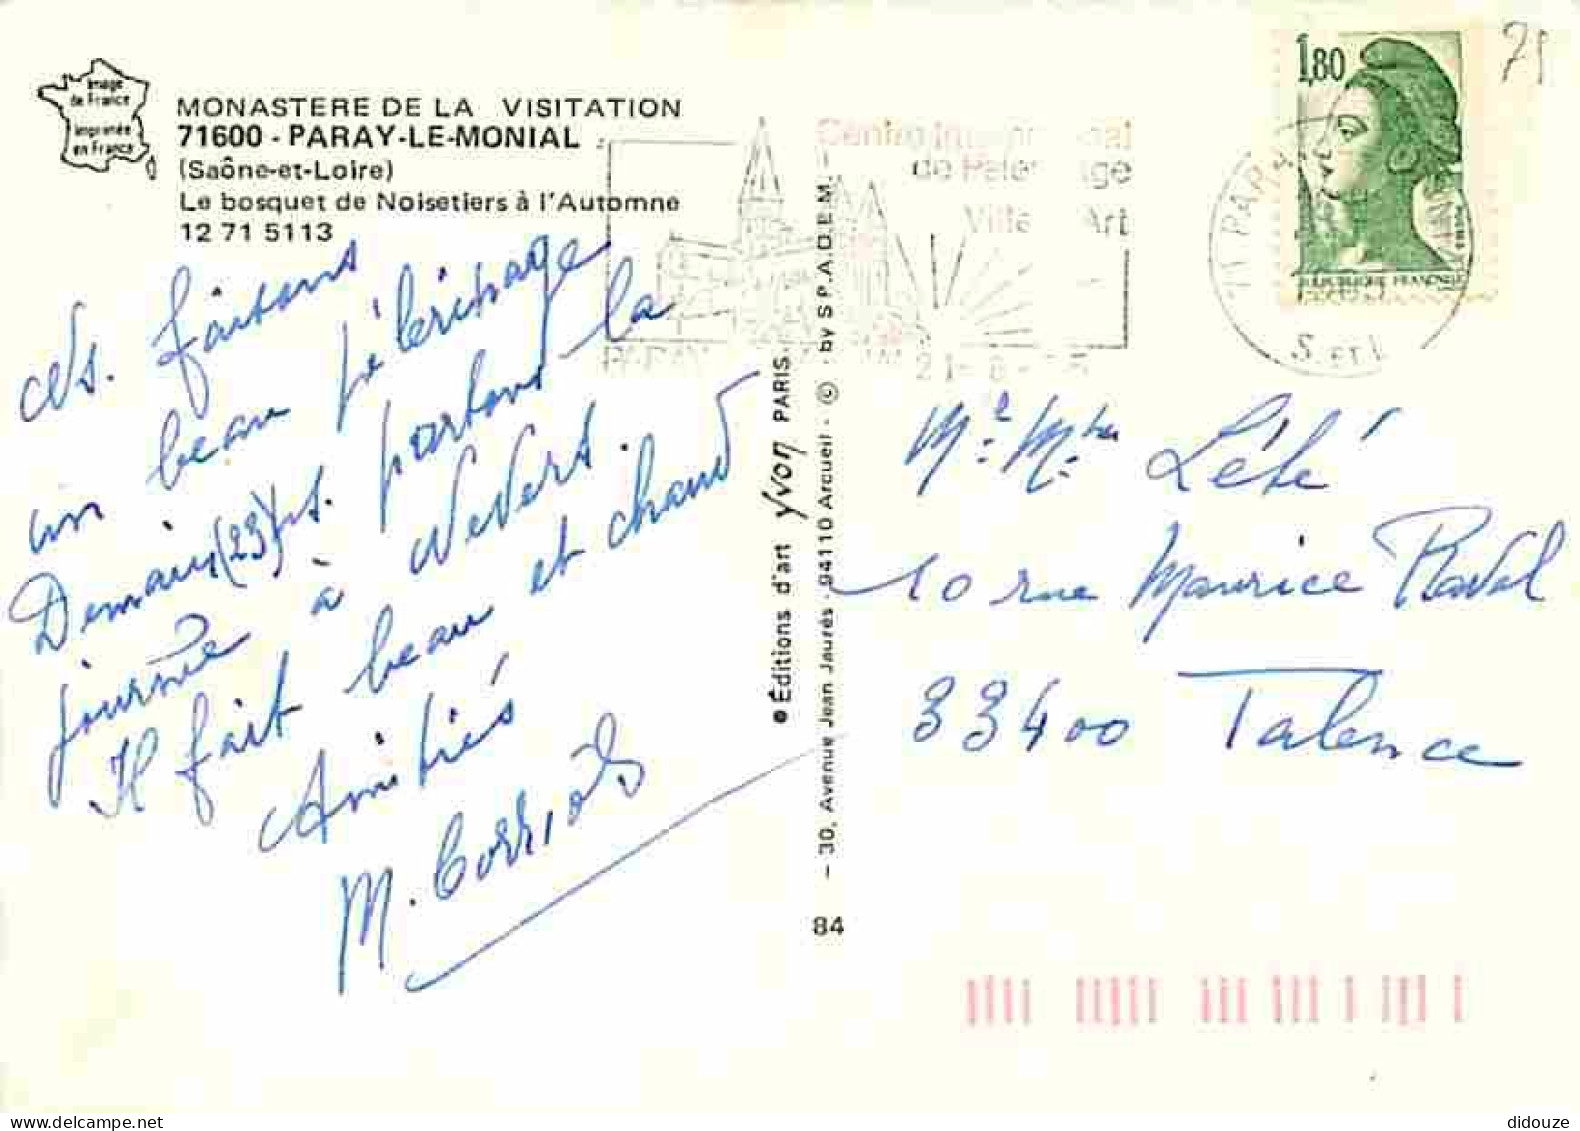 Image
de France
imprimée
en France
MONASTERE DE LA VISITATION
71600 - PARAY-LE-MONIAL
(Saône-et-Loire)
Le bosquet de Noisetiers à l'Automne
12 71 5113
faisons
un beau pèlerinage
Demain (23) partons la
journée à Nevers.
Il fait beau et chaud
Amitiés
M.
● Éditions d'art yvon PARIS
– 30, Avenue Jean Jaurès - 94110 Arcueil - © by S.P.A.D.E.M.
84
Centre International
de Pèlerinage
Ville d'Art
PARAY
21-8
71 PARAY
S. et L
1,80
REPUBLIQUE FRANÇAISE
71
Lébé
10 rue Maurice Ravel
33400 Talence
didouze